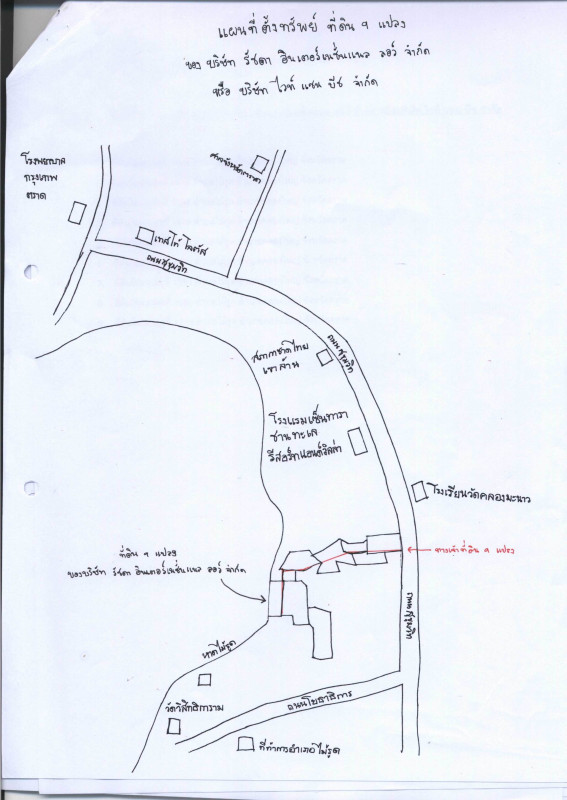 แผนที่ตั้งทรัพย์ ที่ดิน ๆ แปลง
ของ บริษัท รัชดา อินเตอร์เนชั่นแนล ลอว์ จำกัด
หรือ บริษัท ไวท์ แซน บีช จำกัด
โรงพยาบาล
กรุงเทพ
ตราด
เทสโก้ โลตัส
ถนนสุขุมวิท
ถนนสุขุมวิท
สภากาชาดไทย
เขาล้าน
โรงแรมเซ็นทารา
ชานทะเล
รีสอร์ทแอนด์วิลล่า
โรงเรียนวัดคลองมะนาว
ทางเข้าที่ดิน 9 แปลง
ที่ดิน 9 แปลง
ของบริษัท รัชดา อินเตอร์เนชั่นแนล ลอว์ จำกัด
ถนนสุขุมวิท
หาดไม้รูด
ถนนโยธาธิการ
ที่ทำการอำเภอไม้รูด